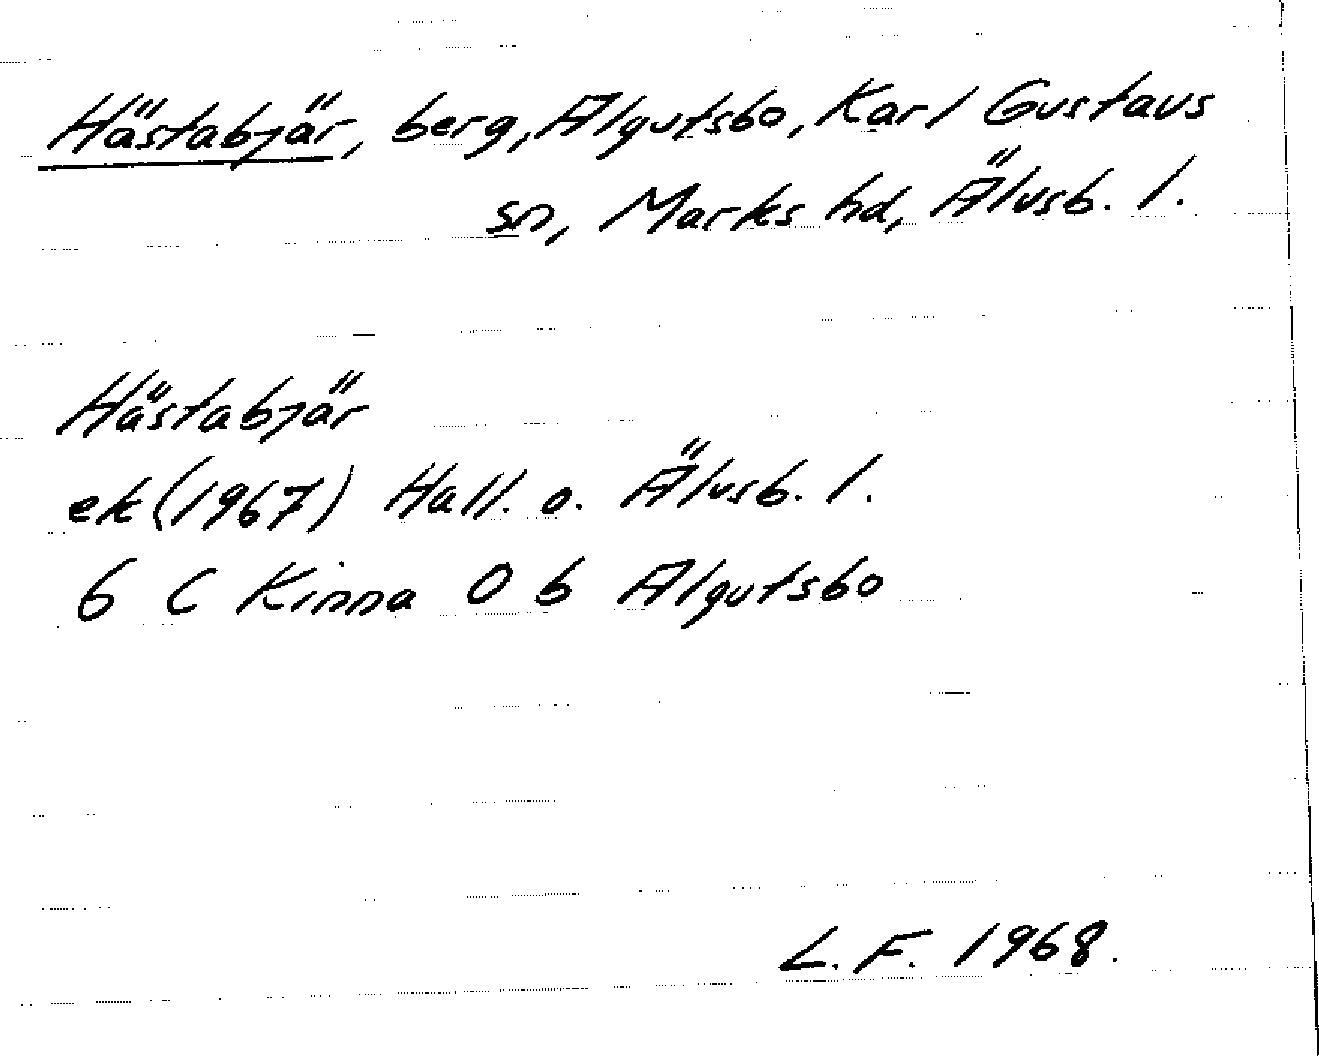 Hästabjär, berg, Algutsbo, Karl Gustavs
sn, Marks hd, Älvsb. l.
Hästabjär
ek (1967) Hall. o. Älvsb. l.
6 C Kinna 0 b Algutsbo
L. F. 1968.